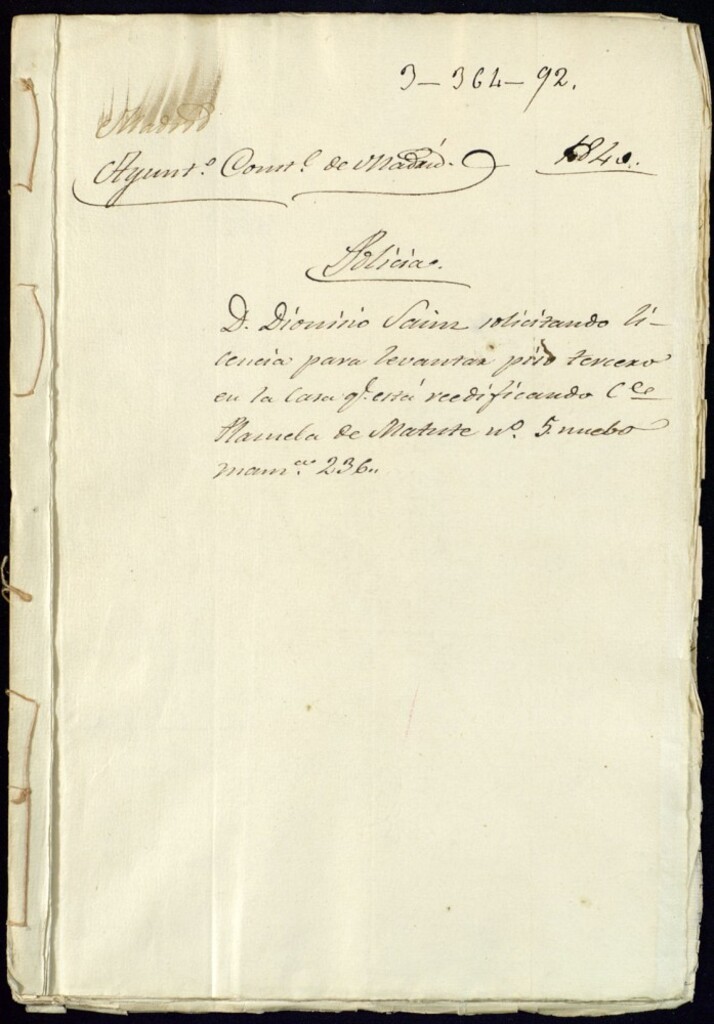 3-364-92.
Madrid
Ayunt.º Const.l de Madrid. 1840.
Policia.
D. Dionisio Sainz solicitando li-
cencia para levantar piso tercero
en la casa q.e está reedificando C.lle
Plazuela de Matute nº. 5. nuebo
manz.na 236..